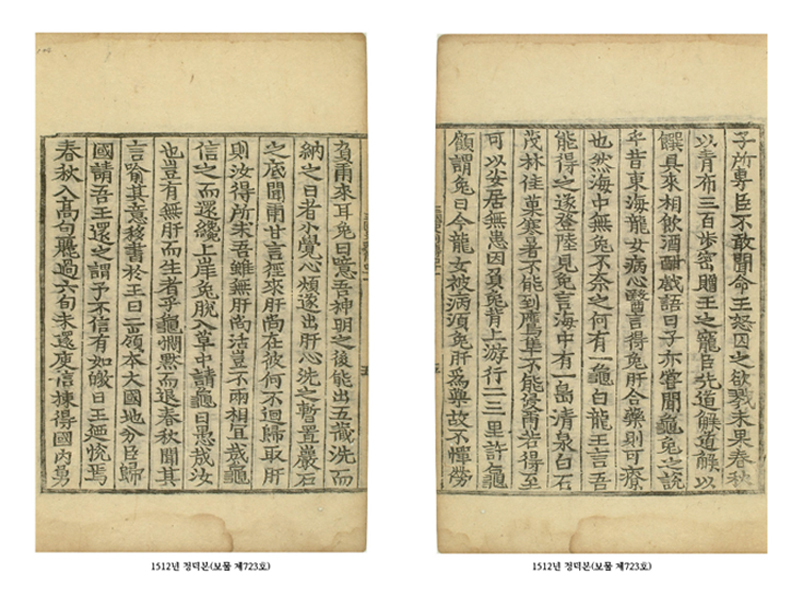 子所專臣不敢聞命王怒囚之欲戮未果春秋
以青布三百步密贈王之寵臣先道解道解以
饌具來相飮酒酣戯語曰子亦嘗聞龜兎之說
乎昔東海龍女病心醫言得兎肝合藥則可療
也然海中無兎不奈之何有一龜白龍王言吾
能得之遂登陸見兎言海中有一島清泉白石
茂林佳菓寒暑不能到鷹隼不能侵爾若得至
可以安居無患因負兎背上游行二三里許龜
顧謂兎曰今龍女被病須兎肝爲藥故不憚勞
負爾來耳兎曰噫吾神明之後能出五藏洗而
納之日者小覺心煩遂出肝心洗之暫置巖石
之底聞爾甘言徑來肝尚在彼何不迴歸取肝
則汝得所求吾雖無肝尚活豈不兩相宜哉龜
信之而還纔上岸兎脫入草中請龜曰愚哉汝
也豈有無肝而生者乎龜憫黙而退春秋聞其
言喻其意移書於王曰二嶺本大國地分臣歸
國請吾王還之謂予不信有如皦日王迺恱焉
春秋入高句麗過六旬未還庾信揀得國内勇
1512년 정덕본(보물 제723호)
1512년 정덕본(보물 제723호)